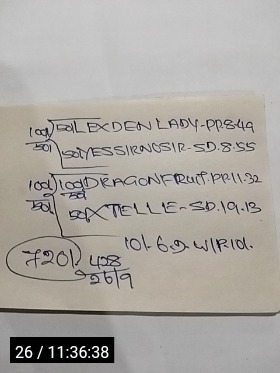 50/ LEXDEN LADY-PP.8.49
100/
50/ 50/ YESSIRNOSIR-SD.8.55
100/ 100/ DRAGONFRUIT.PP.11.32
50/ 50/
50/ X TELLE-SD.19.13
10/. 6.D. W/R 10/.
720/. 428
26/9
26 / 11:36:38